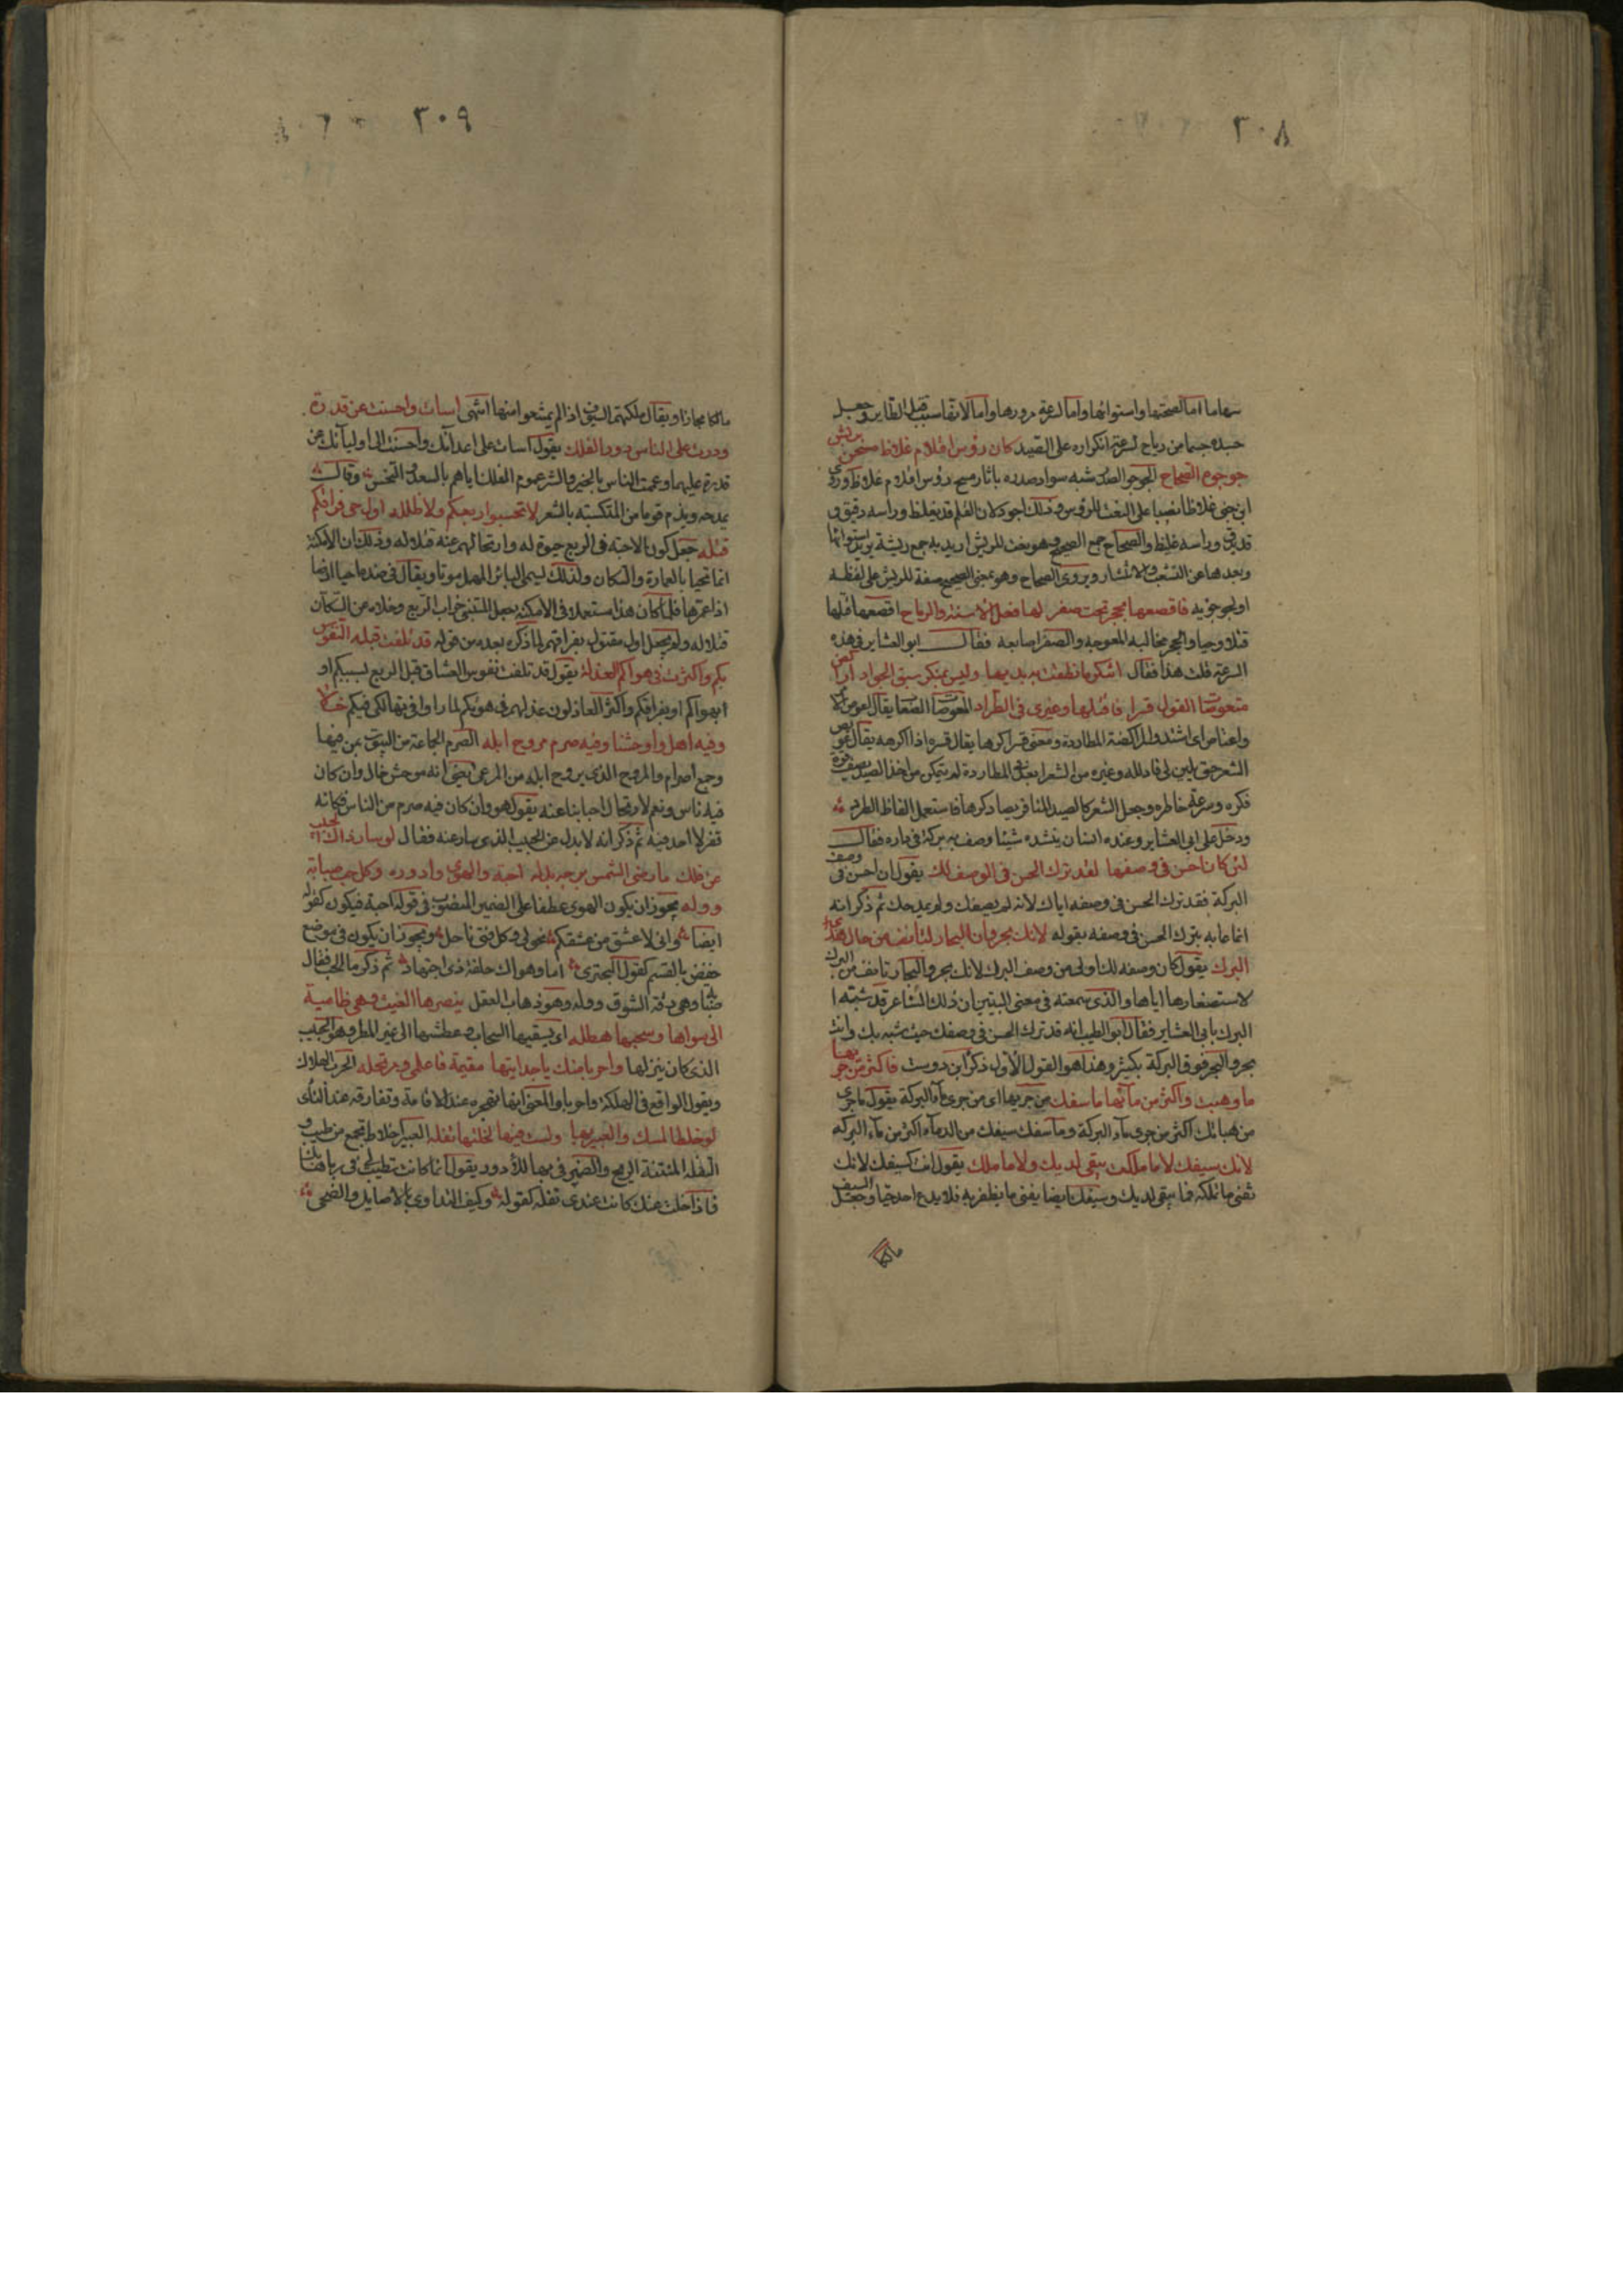 ٣٠٨
سهاما اما لصحتها واستوائها واما لسرعة مرورها واما لانها سبب قتل الطاير وجعل
جسده جسما من رياح لسرعة انكداره على الصيد كان رؤس اقلام غلاظ مسحن بريش
جوجوه الصحاح الجوجو الصدر شبه سواد صدره باثار مسح رؤس اقلام غلاظ وروى
ابن جنى غلاظا نصبا على النعت للرؤس وذلك اجود لان القلم قد يغلظ وراسه دقيق و
قد يدق وراسه غليظ والصحاح جمع الصحيح وهو نعت للريش اريد به جمع ريشة يريد استوائها
وبعدها عن التشعب والانتشار ويروى الصحاح وهو بمعنى الصحيح صفة للريش على لفظه
او لجوجؤه فاقعصها بحجن تحت صفر لها فعل الاسنة والرماح اقعصها قتلها
قتلا وحيا والحجن مخالبه المعوجه والصفر اصابعه فقال ابو العشاير في هذه
السرعة قلت هذا فقال اتنكر ما نطقت به بديها وليس بمنكر سبق الجواد اراكض
معوصات القول قسرا فاقتلها وغيرى في الطراد المعوصات الصعاب يقال اعوص الامر
واعتاص اى اشتد والمراكضة المطاردة ومعنى قسرا كرها يقال قسره اذا اكرهه يقال عويص
الشعر حتى يلين لى فاذلله وغيره من الشعرا بعد في المطاردة لم يتمكن من اخذ الصيد يصف قوة
فكره وسرعة خاطره وجعل الشعر كالصيد النافر يصاد كرها فاستعمل الفاظ الطرد
ودخل على ابي العشاير وعنده انسان ينشده شيئا وصف به بركة في داره فقال
لئن كان احسن في وصفها لقد ترك الحسن في الوصف لك يقول ان احسن في وصف
البركة فقد ترك الحسن في وصفه اياك لانه لم يصفك ولم يمدحك ثم ذكر انه
انما عابه بترك الحسن في وصفه بقوله لانك بحر وان البحار لتانف من حال هذى
البرك يقول كان وصفه لك اولى من وصف البرك لانك بحر والبحار تانف من البرك
لاستصغارها اياها والذى سمعته في معنى البيتين ان ذلك الشاعر قد شبه
البرك بابي العشاير فقال ابو الطيب انه قد ترك الحسن في وصفك حيث شبه بك وانت
بحر والبحر فوق البركة بكثير وهذا هو القول الاول ذكر ابن دوست فاكثر من جريها
ما وهبت واكثر من مآئها ما سفك من جريها اى من جرى مآء البركة يقول ما جرى
من هباتك اكثر من جرى مآء البركة وما سفك سيفك من الدمآء اكثر من مآء البركة
لانك سيفك لا ما ملكت يبقى لديك ولا ما ملك يقول انت كسيفك لانك
تفنى ما تملكه فما يبقى لديك وسيفك ايضا يفنى ما يظفر به فلا يدع احدا حيا وجعل السيف
مالكا
٣٠٩
مالكا مجازا ويقال ملكتهم السيوف اذا لم يمتنعوا منها انتهى اسات واحسنت عن قدرة
ودرت على الناس دور الفلك يقول اسات على اعدآئك واحسنت الى اوليآئك عن
قدرة عليهما وعمت الناس بالخير والشر عموم الفلك اياهم بالسعد والنحس وقال
يمدحه ويذم قوما من المتكسبة بالشعر لا تحسبوا ربعكم ولا طلله اول حى فراقكم
قتله جعل كون الاحبة في الربع حيوة له وارتحالهم عنه قتلا له وذلك ان الامكنة
انما تحيا بالعمارة والسكان ولذلك يسمى الباير المهمل مواتا ويقال في ضده احيا ارضا
اذا عمرها فلما كان هذا مستعملا في الامكنة جعل المتنبى خراب الربع وخلاه من السكان
قتلا له ولم يجعل اول مقتول بفراقهم لما ذكره بعده من قوله قد تلفت قبله النفوس
بكم واكثرت في هواكم العذلة يقول قد تلفت نفوس العشاق قبل الربع بسببكم او
بهواكم او بفراقكم واكثر العاذلون عذلهم في هواكم لما راوا في تهالكى فيكم خلا
وفيه اهل واوحشنا وفيه صرم مروح ابله الصرم الجماعة من البيوت بمن فيها
وجمع اصرام والمروح الذى يروح ابله من المرعى يعنى انه موحش خال وان كان
فيه ناس ونعم لارتحال احبابنا عنه يقول هو وان كان فيه صرم من الناس فكانه
قفر لا احد فيه ثم ذكر انه لا بدل عن الحبيب الذى سار عنه فقال لو سار ذاك الحبيب
عن فلك ما رضى الشمس برجه بدله احبه والهوى وادوره وكل حب صبابة
ووله يجوز ان يكون الهوى عطفا على الضمير المنصوب في قوله احبه فيكون كقوله
ايضا وانى لاعشق من عشقكم نحولى وكل فتى ناحل ويجوز ان يكون في موضع
خفض بالقسم كقول البحترى اما وهواك حلفة ذى اجتهاد ثم ذكر ما الحب فقال
صبابة وهى رقة الشوق ووله وهو ذهاب العقل ينصرها الغيث وهى ظامية
الى سواها وسحبها هطله اى يسقيها السحاب وعطشها الى غير المطر وهو الحبيب
الذى كان ينزلها واحربا منك يا جدايتها مقيمة فاعلمى ومرتحله الحرب الهلاك
ويقول الواقع في الهلكة واحربا والمعنى انها تهجره عند الاقامة وتفارقه عند النأى
لو خلط المسك والعبير بها ولست فيها لخلتها تفله العبير اخلاط تجمع من طيب و
التفله المنتنة الريح والضمير في بها للادور يقول انما كانت تطيب لى في رباها بك
فاذا خلت منك كانت عندى تفله كقوله وكيف التذاذى بالاصايل والضحى